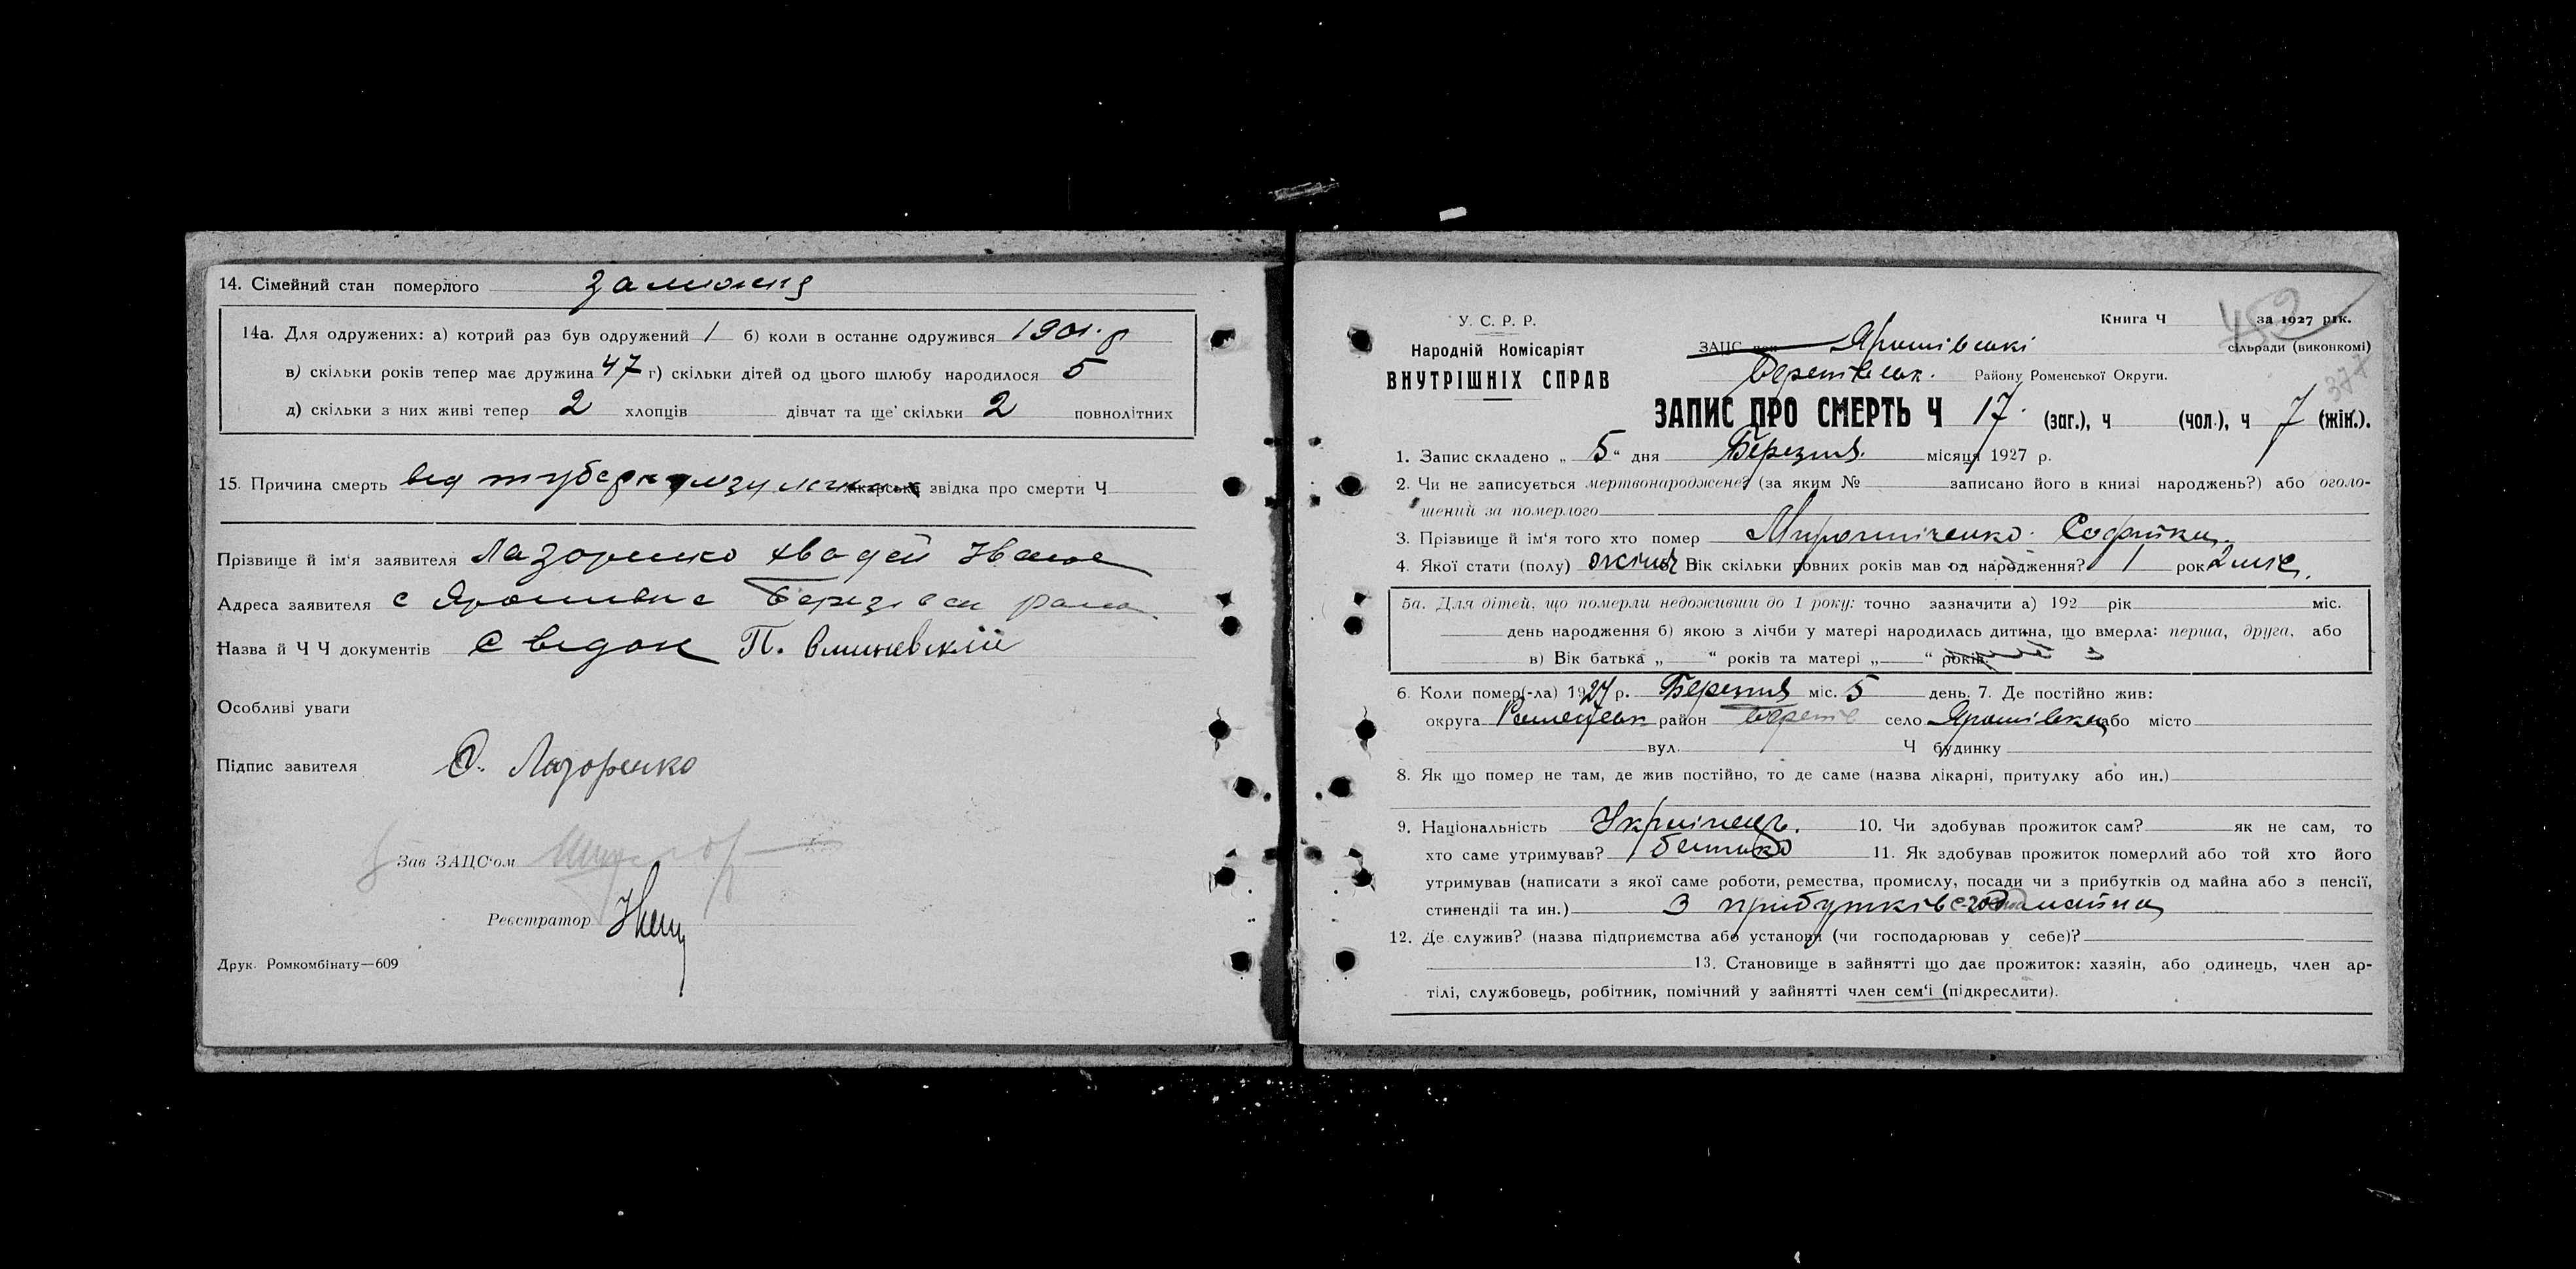 14. Сімейний стан померлого замюжня
14а. Для одружених: а) котрий раз був одружений 1 б) коли в останнє одружився 1901 р
в) скільки років тепер має дружина 47 г) скільки дітей од цього шлюбу народилося 5
д) скільки з них живі тепер 2 хлопців дівчат та ще скільки 2 повнолітних
15. Причина смерть від туберкульзу лікарська звідка про смерти Ч
Прізвище й ім'я заявителя Лазоренко Хвадей
Адреса заявителя с Ярошивка
Назва й ЧЧ документів Сведок П.
Особливі уваги
Підпис завителя Лазоренко
Зав ЗАЦС'ом
Реєстратор
Друк. Ромкомбінату—609
452
У. С. Р. Р.
Книга Ч за 1927 рік.
Народній Комісаріят
ВНУТРІШНІХ СПРАВ
ЗАЦС Ярошівські сільради (виконкомі)
Району Роменської Округи.
377
ЗАПИС ПРО СМЕРТЬ Ч 17. (заг.), ч (чол.), ч 7 (жін.).
1. Запис складено „ 5 “ дня Березня. місяця 1927 р.
2. Чи не записується мертвонароджене? (за яким № записано його в книзі народжень?) або оголо-
шений за померлого
3. Прізвище й ім'я того хто помер Мирошніченко Софійка
4. Якої стати (полу) жіноч Вік скільки повних років мав од народження? 1 рок 2 міс.
5а. Для дітей, що померли недоживши до 1 року: точно зазначити а) 192 рік міс.
день народження б) якою з лічби у матері народилась дитина, що вмерла: перша, друга, або
в) Вік батька „ “ років та матері „ “ років.
6. Коли помер(-ла) 1927 р. Березня міс. 5 день. 7. Де постійно жив:
округа Роменськ район село Ярошівка або місто
вул. Ч будинку
8. Як що помер не там, де жив постійно, то де саме (назва лікарні, притулку або ин.)
9. Національність Українець. 10. Чи здобував прожиток сам? як не сам, то
хто саме утримував? батько 11. Як здобував прожиток померлий або той хто його
утримував (написати з якої саме роботи, ремества, промислу, посади чи з прибутків од майна або з пенсії,
стипендії та ин.) З прибутків од майна
12. Де служив? (назва підприємства або установи (чи господарював у себе)?
13. Становище в зайнятті що дає прожиток: хазяін, або одинець, член ар-
тілі, службовець, робітник, помічний у зайнятті член сем'і (підкреслити).